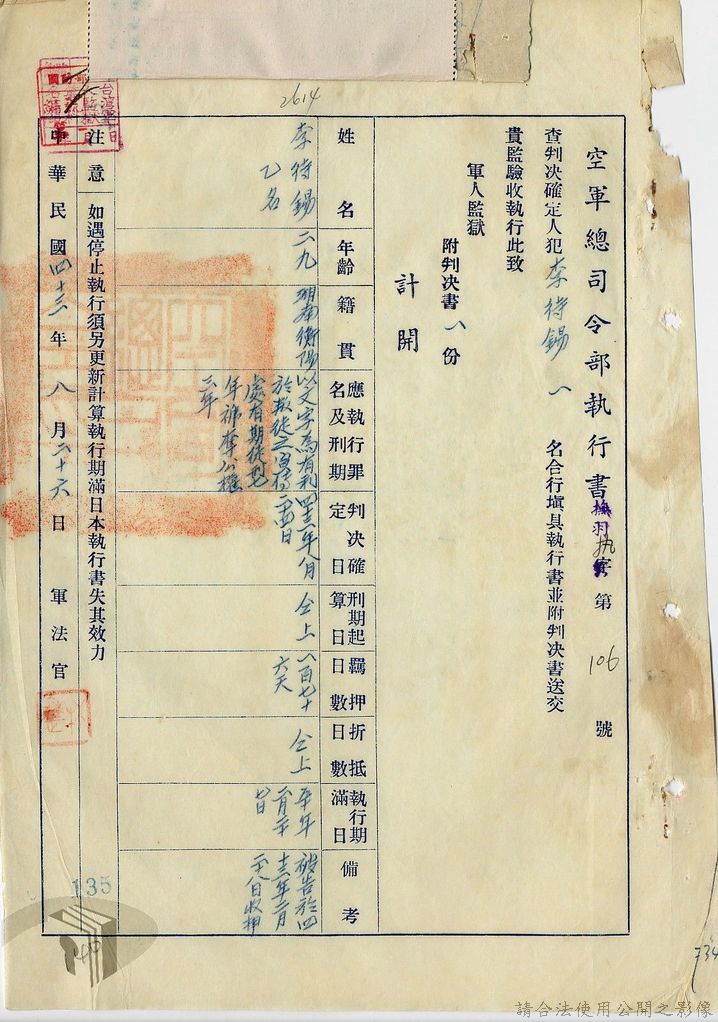 2614
空軍總司令部執行書
執字第106號
查判决確定人犯李待錫一名合行塡具執行書並附判决書送交
貴監驗收執行此致
軍人監獄
附判决書一份
計開
姓名
李待錫
乙名
年齡
二九
籍貫
湖南衡陽
應執行罪
名及刑期
以文字為有利
於叛徒之宣傳
處有期徒刑七
年褫奪公權
三年
判决確
定日
年八月
日
刑期起
算日
仝上
羈押
日數
一百七十
六天
折抵
日數
仝上
執行期
滿日
年
備考
被告於四
十三年二月
二十八日收押
注意
如遇停止執行須另更新計算執行期滿日本執行書失其效力
中華民國四十三年八月二十六日
軍法官
135
140
734
請合法使用公開之影像